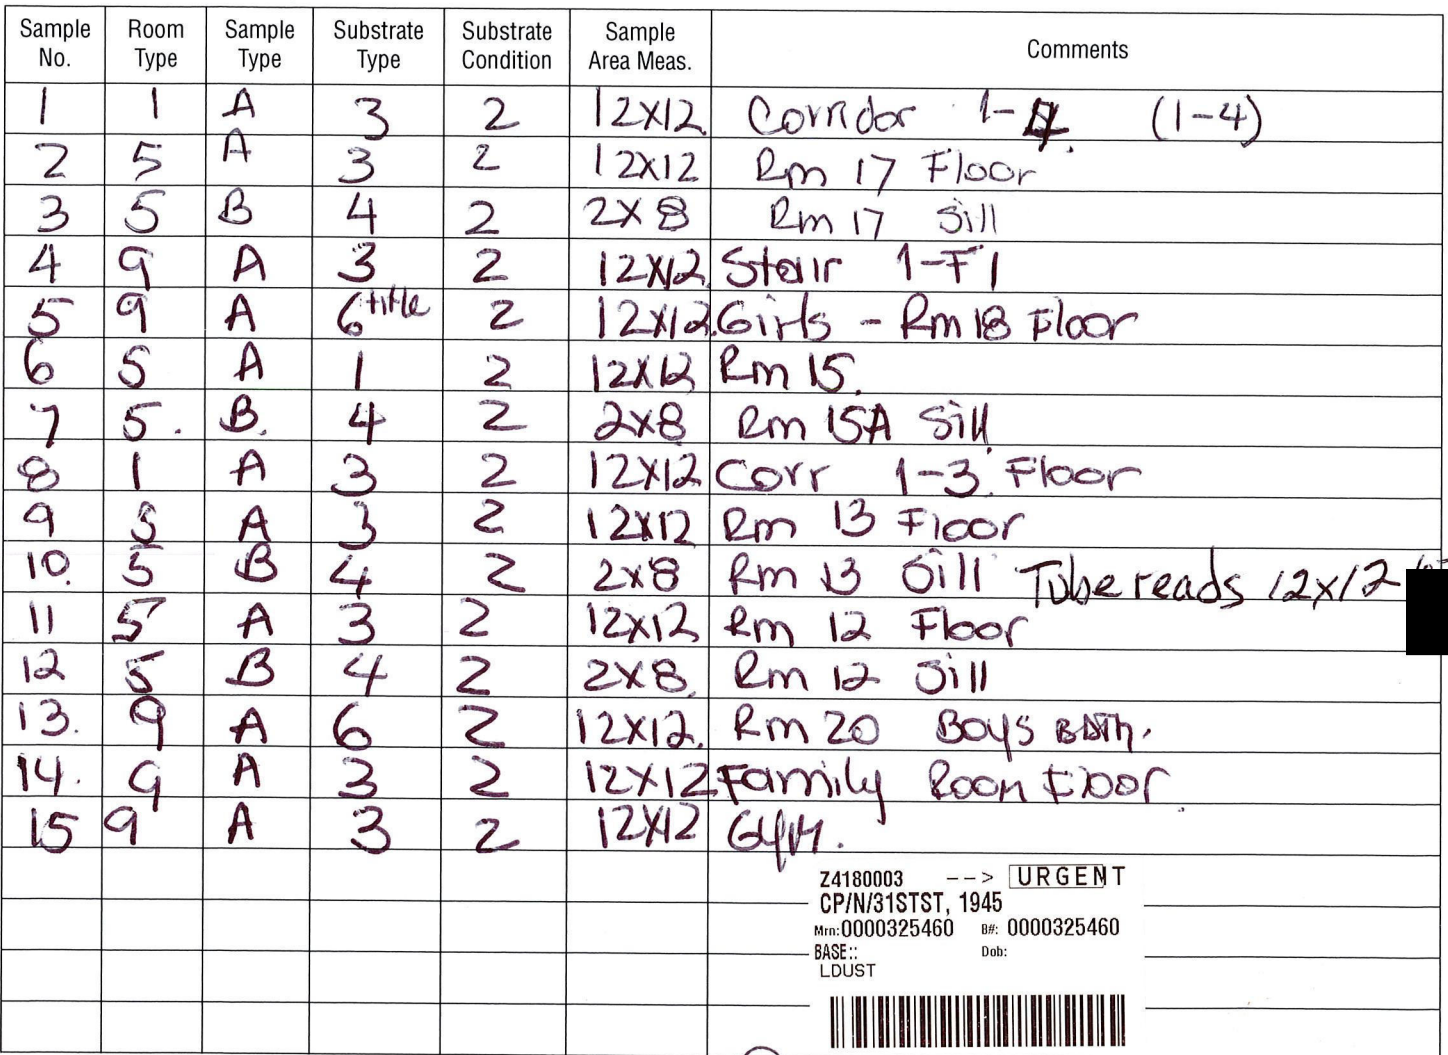 Sample No. Room Type Sample Type Substrate Type Substrate Condition Sample Area Meas. Comments
1 1 A 3 2 12x12 Corridor 1- (1-4)
2 5 A 3 2 12x12 Rm 17 Floor
3 5 B 4 2 2x8 Rm 17 Sill
4 9 A 3 2 12x12 Stair 1-F1
5 9 A 6 title 2 12x12 Girls - Rm 18 Floor
6 5 A 1 2 12x12 Rm 15.
7 5. B. 4 2 2x8 Rm 15A Sill
8 1 A 3 2 12x12 Corr 1-3 Floor
9 5 A 3 2 12x12 Rm 13 Floor
10. 5 B 4 2 2x8 Rm 13 Sill Tube reads 12x12
11 5 A 3 2 12x12 Rm 12 Floor
12 5 B 4 2 2x8 Rm 12 Sill
13. 9 A 6 2 12x12. Rm 20 Boys Bath.
14. 9 A 3 2 12x12 Family Room Floor
15 9 A 3 2 12x12 Gym.
Z4180003 --> URGENT
CP/N/31STST, 1945
Mrn:0000325460 B#: 0000325460
BASE:: Dob:
LDUST